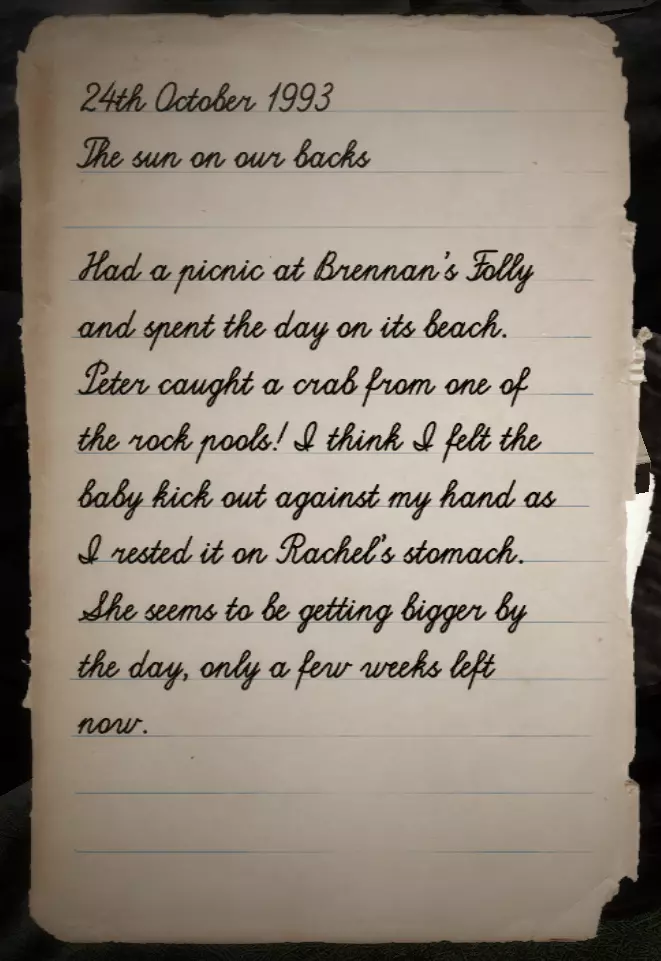 24th October 1993
The sun on our backs
Had a picnic at Brennan's Folly
and spent the day on its beach.
Peter caught a crab from one of
the rock pools! I think I felt the
baby kick out against my hand as
I rested it on Rachel's stomach.
She seems to be getting bigger by
the day, only a few weeks left
now.